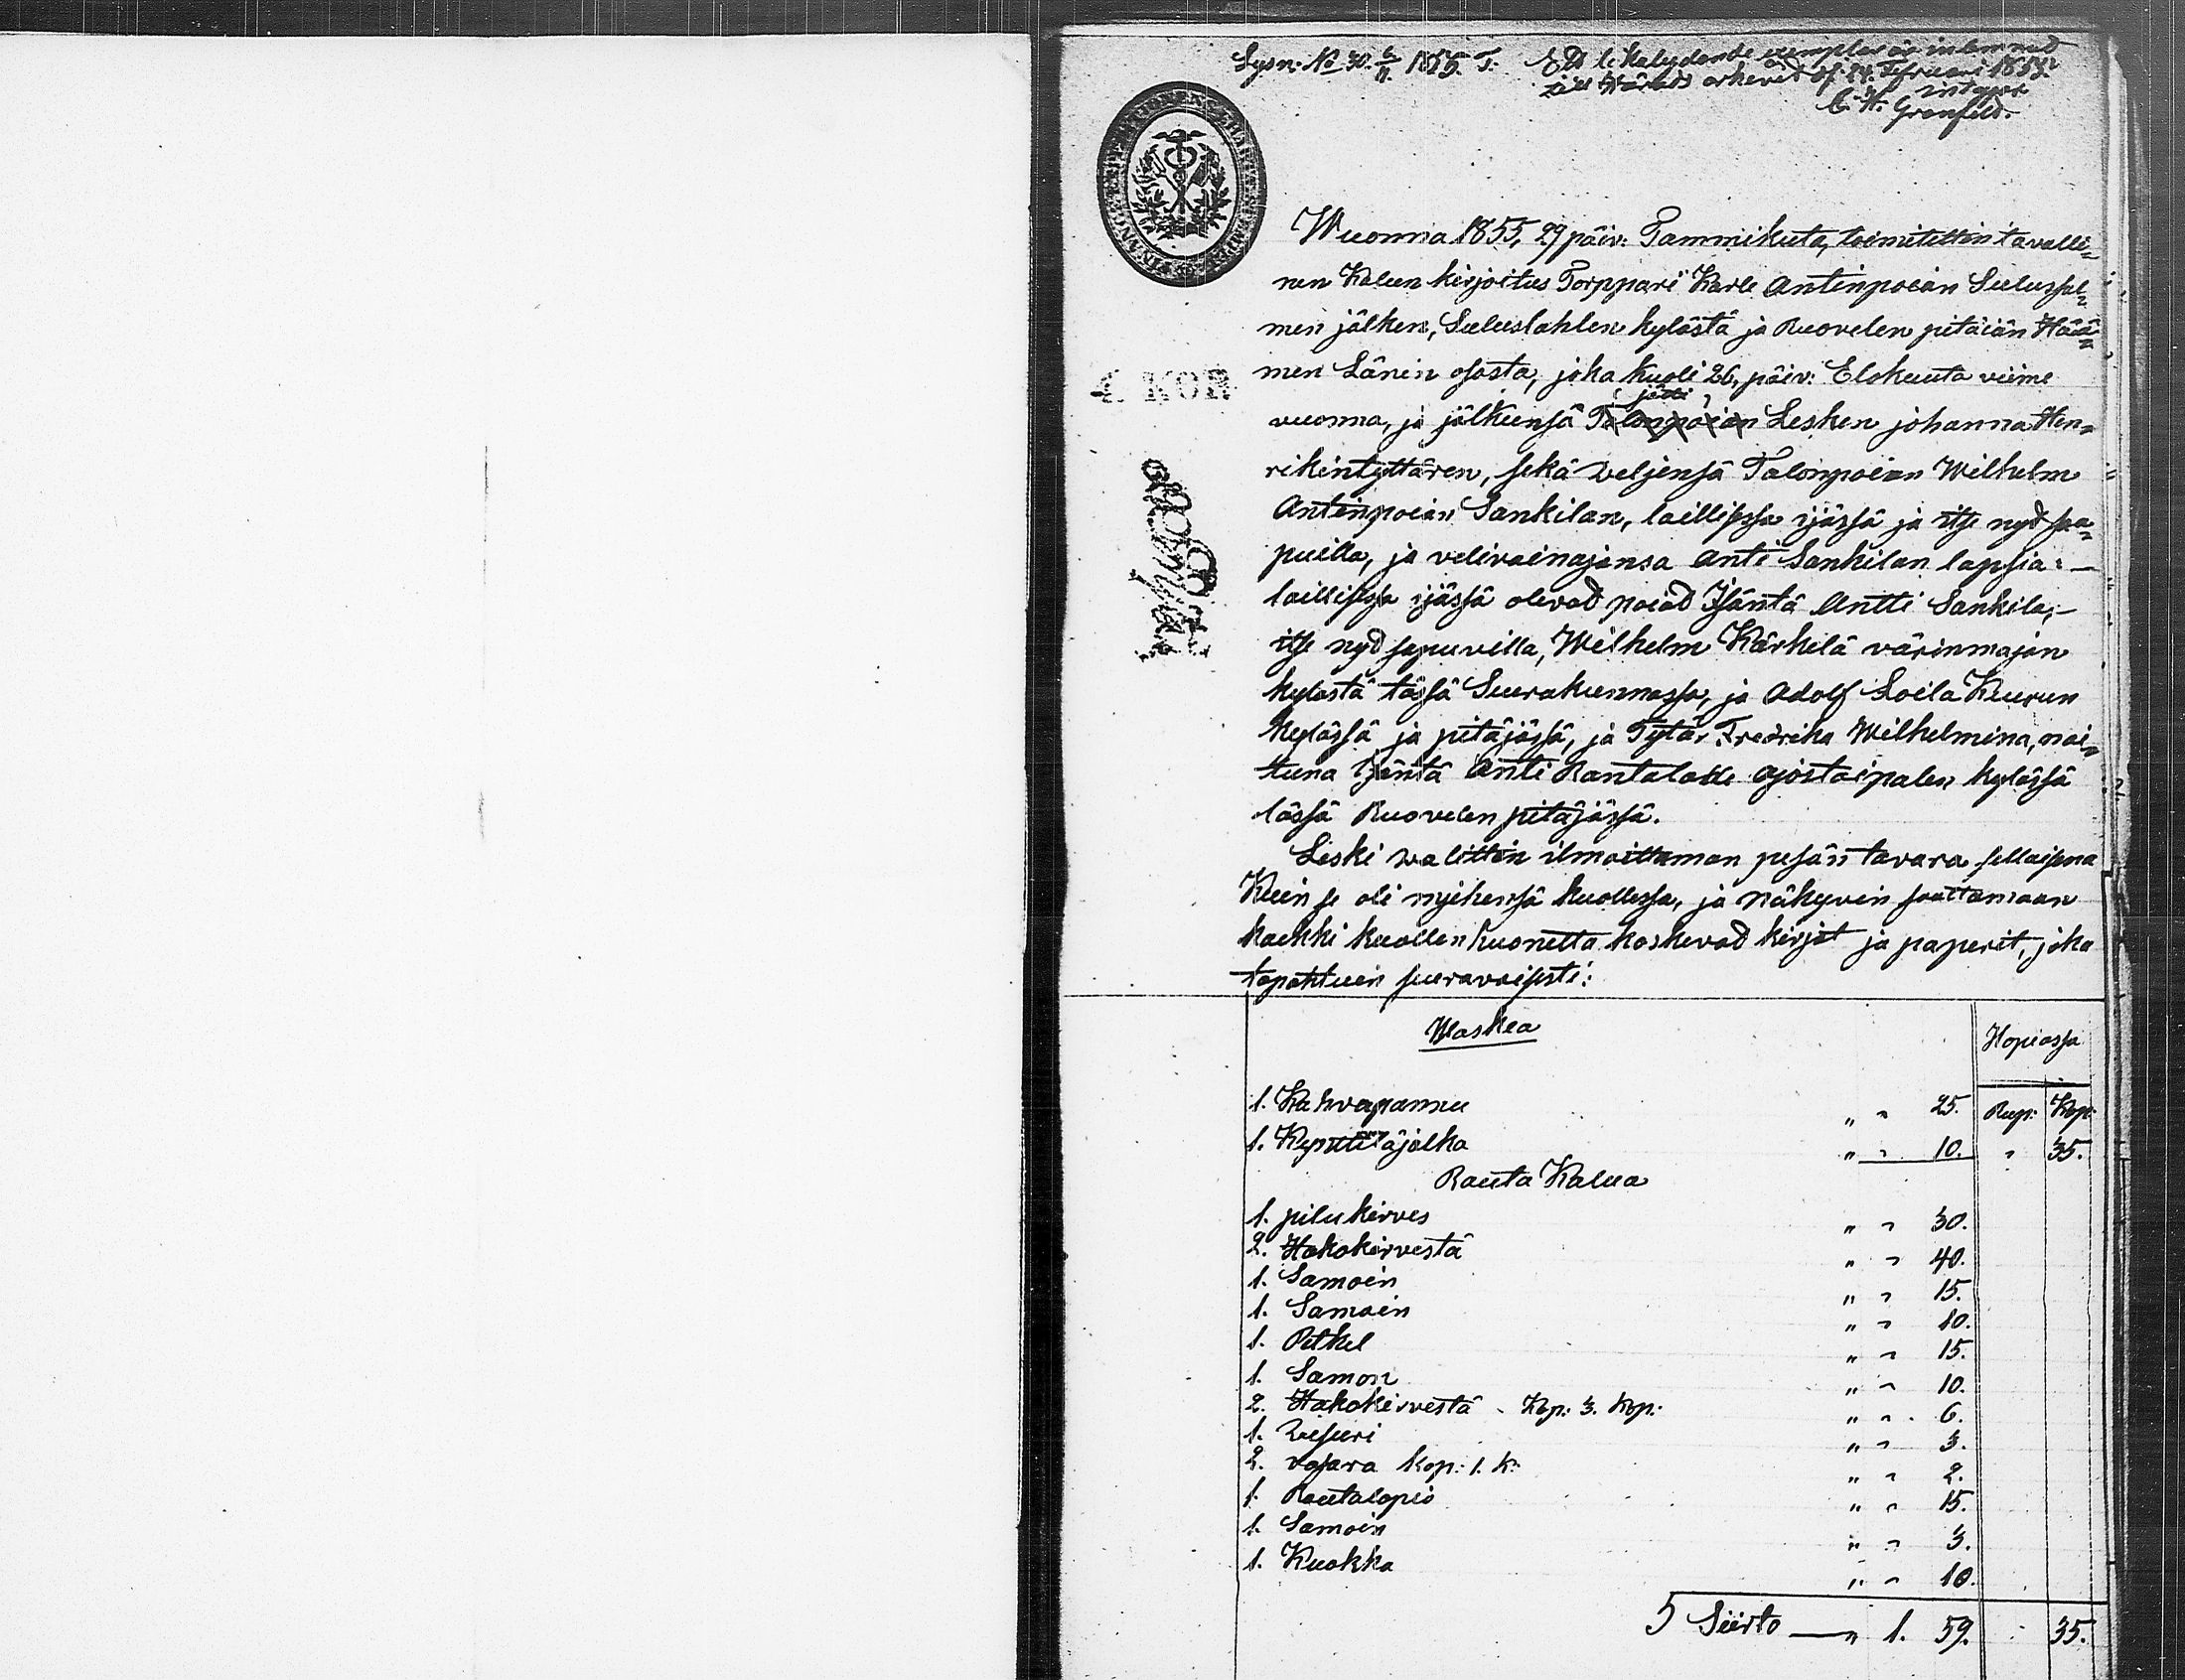 Lysn: No 30. 5/11 1855. T. Ett likalydande exemplar är inlemnad
till Härads arkivet af 24. Februari 1855.
intygar
C. W. Gronfeld.
Wuonna 1855, 29 päiv: Tammikuta, toimitettin tavalli-
nen Kalun kirjoitus Torppari Karle Antinpoian Sulussal-
men jälken, Suluslahlen kylästä ja Ruovelen pitäiän Hää-
men Länin osasta, joka kuoli 26, päiv: Elokuuta viime
4 KOP.
jätti
vuonna, ja jälkensä Talonpoian Lesken johanna Hen-
rikintyttären, sekä veljensä Talonpoian Wilhelm
Antinpoian Sankilan, laillisessa ijässä ja itse nyd saa-
puilla, ja velivainajansa Anti Sankilan lapsia: –
laillisessa ijässä olevad poiad Isäntä Antti Sankila, –
itse nyd sapuvilla, Wilhelm Kärkelä värinmajan
kylästä tässä Seurakunnassa, ja Adolf Loila Kuurun
kylässä ja pitäjässä, ja Tytär Fredrika Wilhelmina, nai-
tuna Isäntä Anti Rantalalle ajostaipalen kylässä
tässä Ruovelen pitäjässä.
Leski walittin ilmoittaman pesän tavara sellaisena
Kuin se oli miehensä kuollessa, ja näkyvin saattamaan
kaikki kuollen kuonetta koskevad kirjat ja paperit, joka
tapahtuin seuravaisesti:
Waskea
Hopiassa
Rup: Kop:
1. Kahvapannu „ „ 25.
1. Kynttiläjalka „ „ 10. „ 35.
Rauta Kalua
1. pilukirves „ „ 30.
2. Hakokirvestä „ „ 40.
1. Samoin „ „ 15.
1. Samoin „ „ 10.
1. Petkel „ „ 15.
1. Samon „ „ 10.
2. Hakokirvestä Kop: 3. Kop: „ „ 6.
1. Vesuri „ „ 3.
2. vasara kop: 1. k: „ „ 2.
1. Rautalapio „ „ 15.
1. Samoin „ „ 3.
1. Kuokka „ „ 10.
5 Siirto — „ 1. 59. 35.